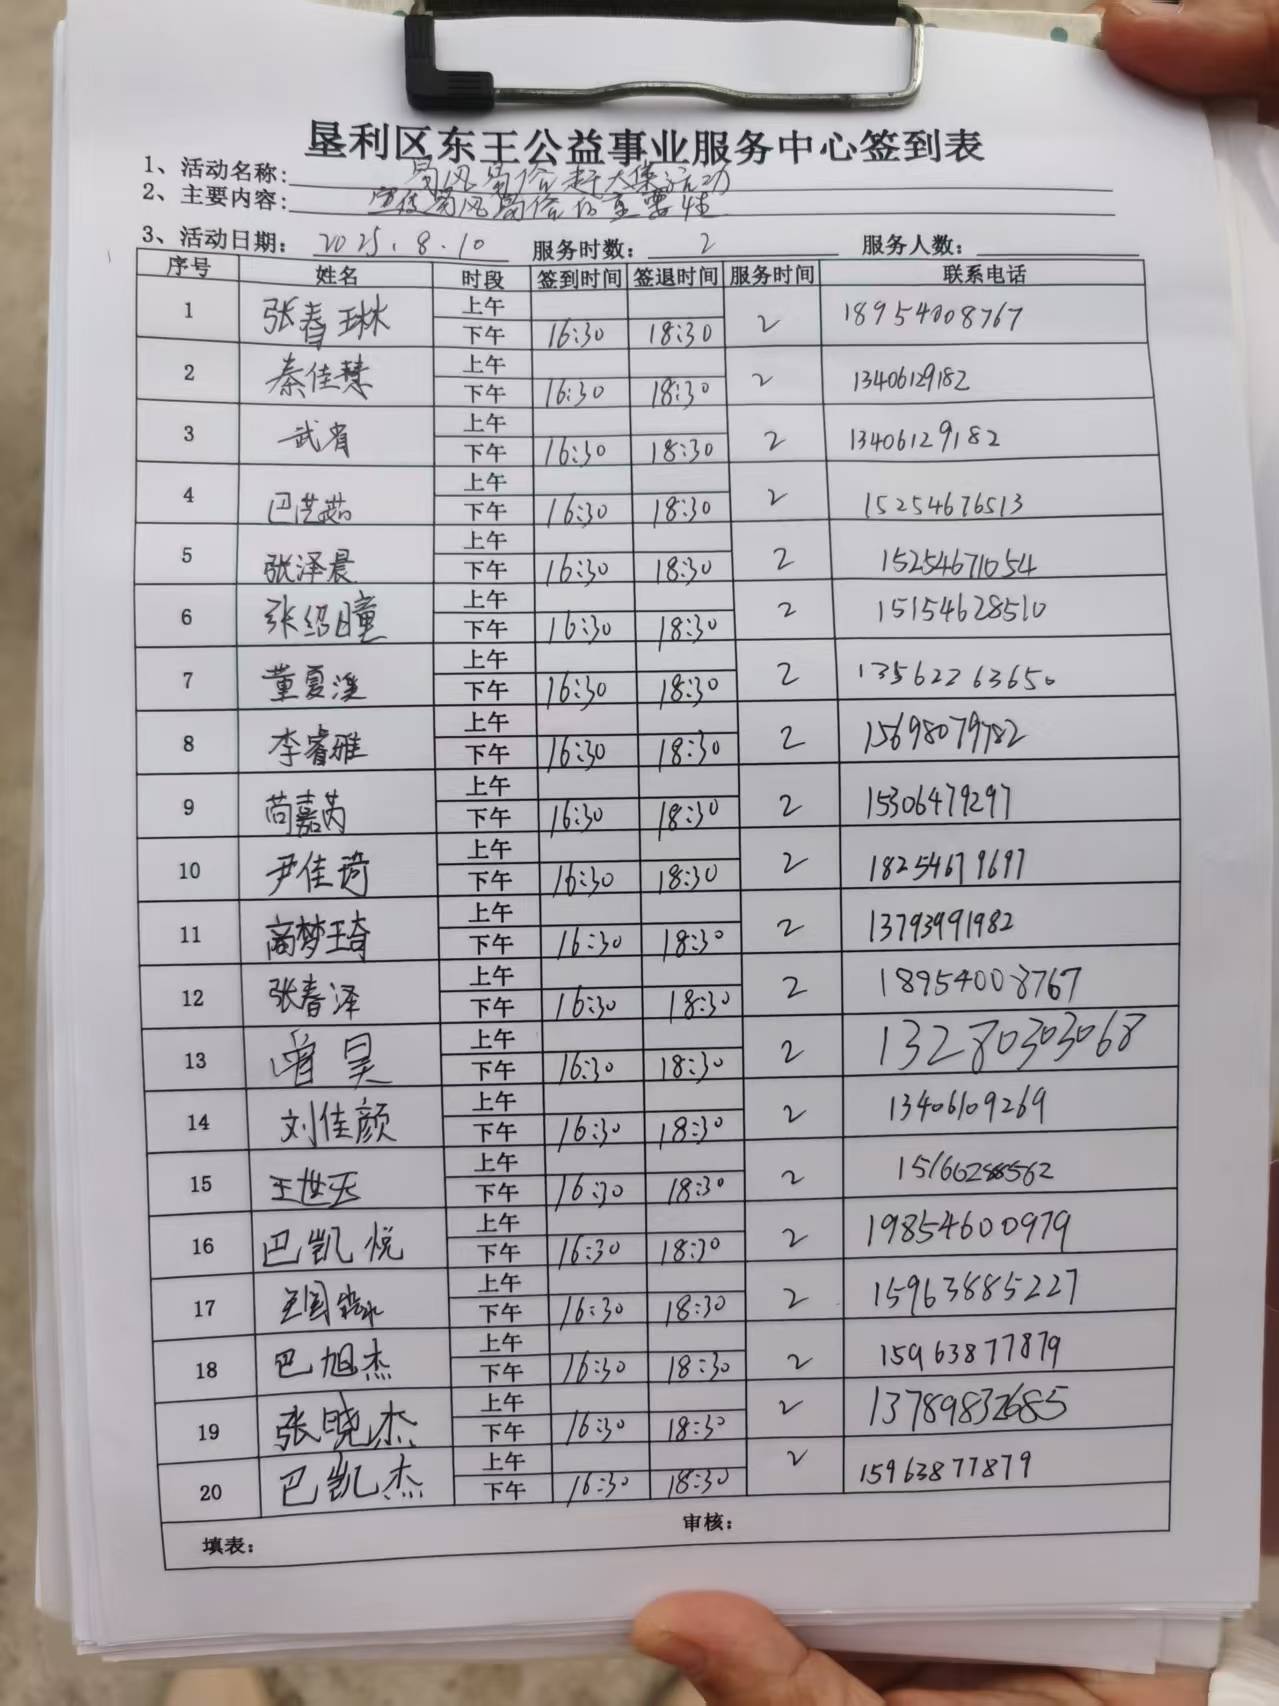 垦利区东王公益事业服务中心签到表
1、活动名称: 移风易俗赶大集活动
2、主要内容: 宣传移风易俗的重要性
3、活动日期: 2025.8.10 服务时数: 2 服务人数:
序号 姓名 时段 签到时间 签退时间 服务时间 联系电话
1 张春琳 上午 2 18954008767
下午 16:30 18:30
2 秦佳慧 上午 2 13406129182
下午 16:30 18:30
3 武省 上午 2 13406129182
下午 16:30 18:30
4 巴 上午 2 15254676513
下午 16:30 18:30
5 张泽晨 上午 2 15254671054
下午 16:30 18:30
6 张绍瞳 上午 2 15154628510
下午 16:30 18:30
7 董夏溪 上午 2 13562263650
下午 16:30 18:30
8 李睿雅 上午 2 15698079782
下午 16:30 18:30
9 苘嘉芮 上午 2 15306479297
下午 16:30 18:30
10 尹佳琦 上午 2 18254679697
下午 16:30 18:30
11 商梦琦 上午 2 13793991982
下午 16:30 18:30
12 张春泽 上午 2 18954008767
下午 16:30 18:30
13 曾昊 上午 2 13280303068
下午 16:30 18:30
14 刘佳颜 上午 2 13406109269
下午 16:30 18:30
15 王世天 上午 2
下午 16:30 18:30
16 巴凯悦 上午 2 19854600979
下午 16:30 18:30
17 上午 2 15963885227
下午 16:30 18:30
18 巴旭杰 上午 2 15963877879
下午 16:30 18:30
19 张晓杰 上午 2 13789832685
下午 16:30 18:30
20 巴凯杰 上午 2 15963877879
下午 16:30 18:30
填表: 审核: